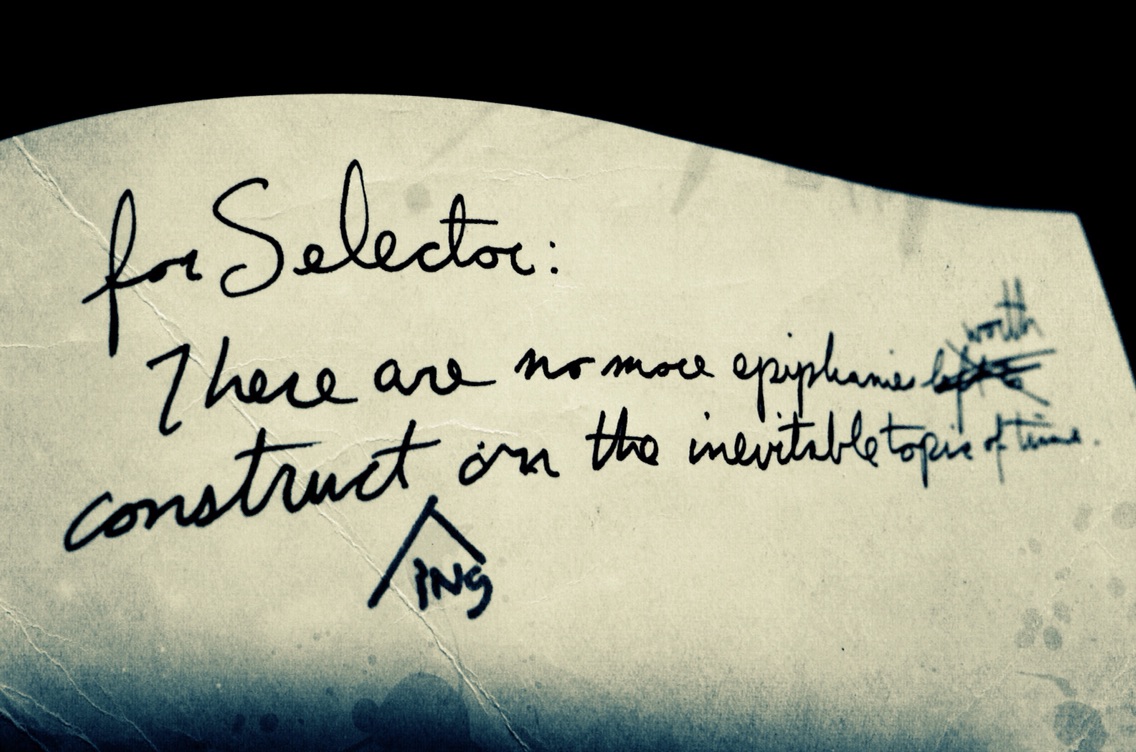 for Selector:
worth
There are no more epiphanies left to
construct on the inevitable topic of time.
ING